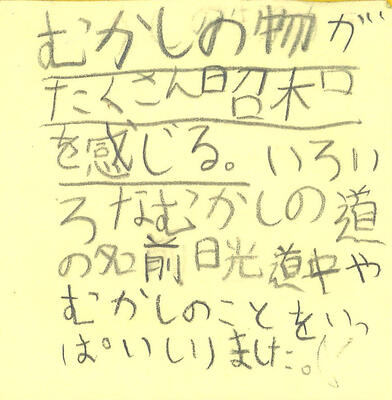 むかしの物が
たくさん昭和
を感じる。いろい
ろなむかしの道
の名前日光道中や
むかしのことをいっ
ぱいしりました。